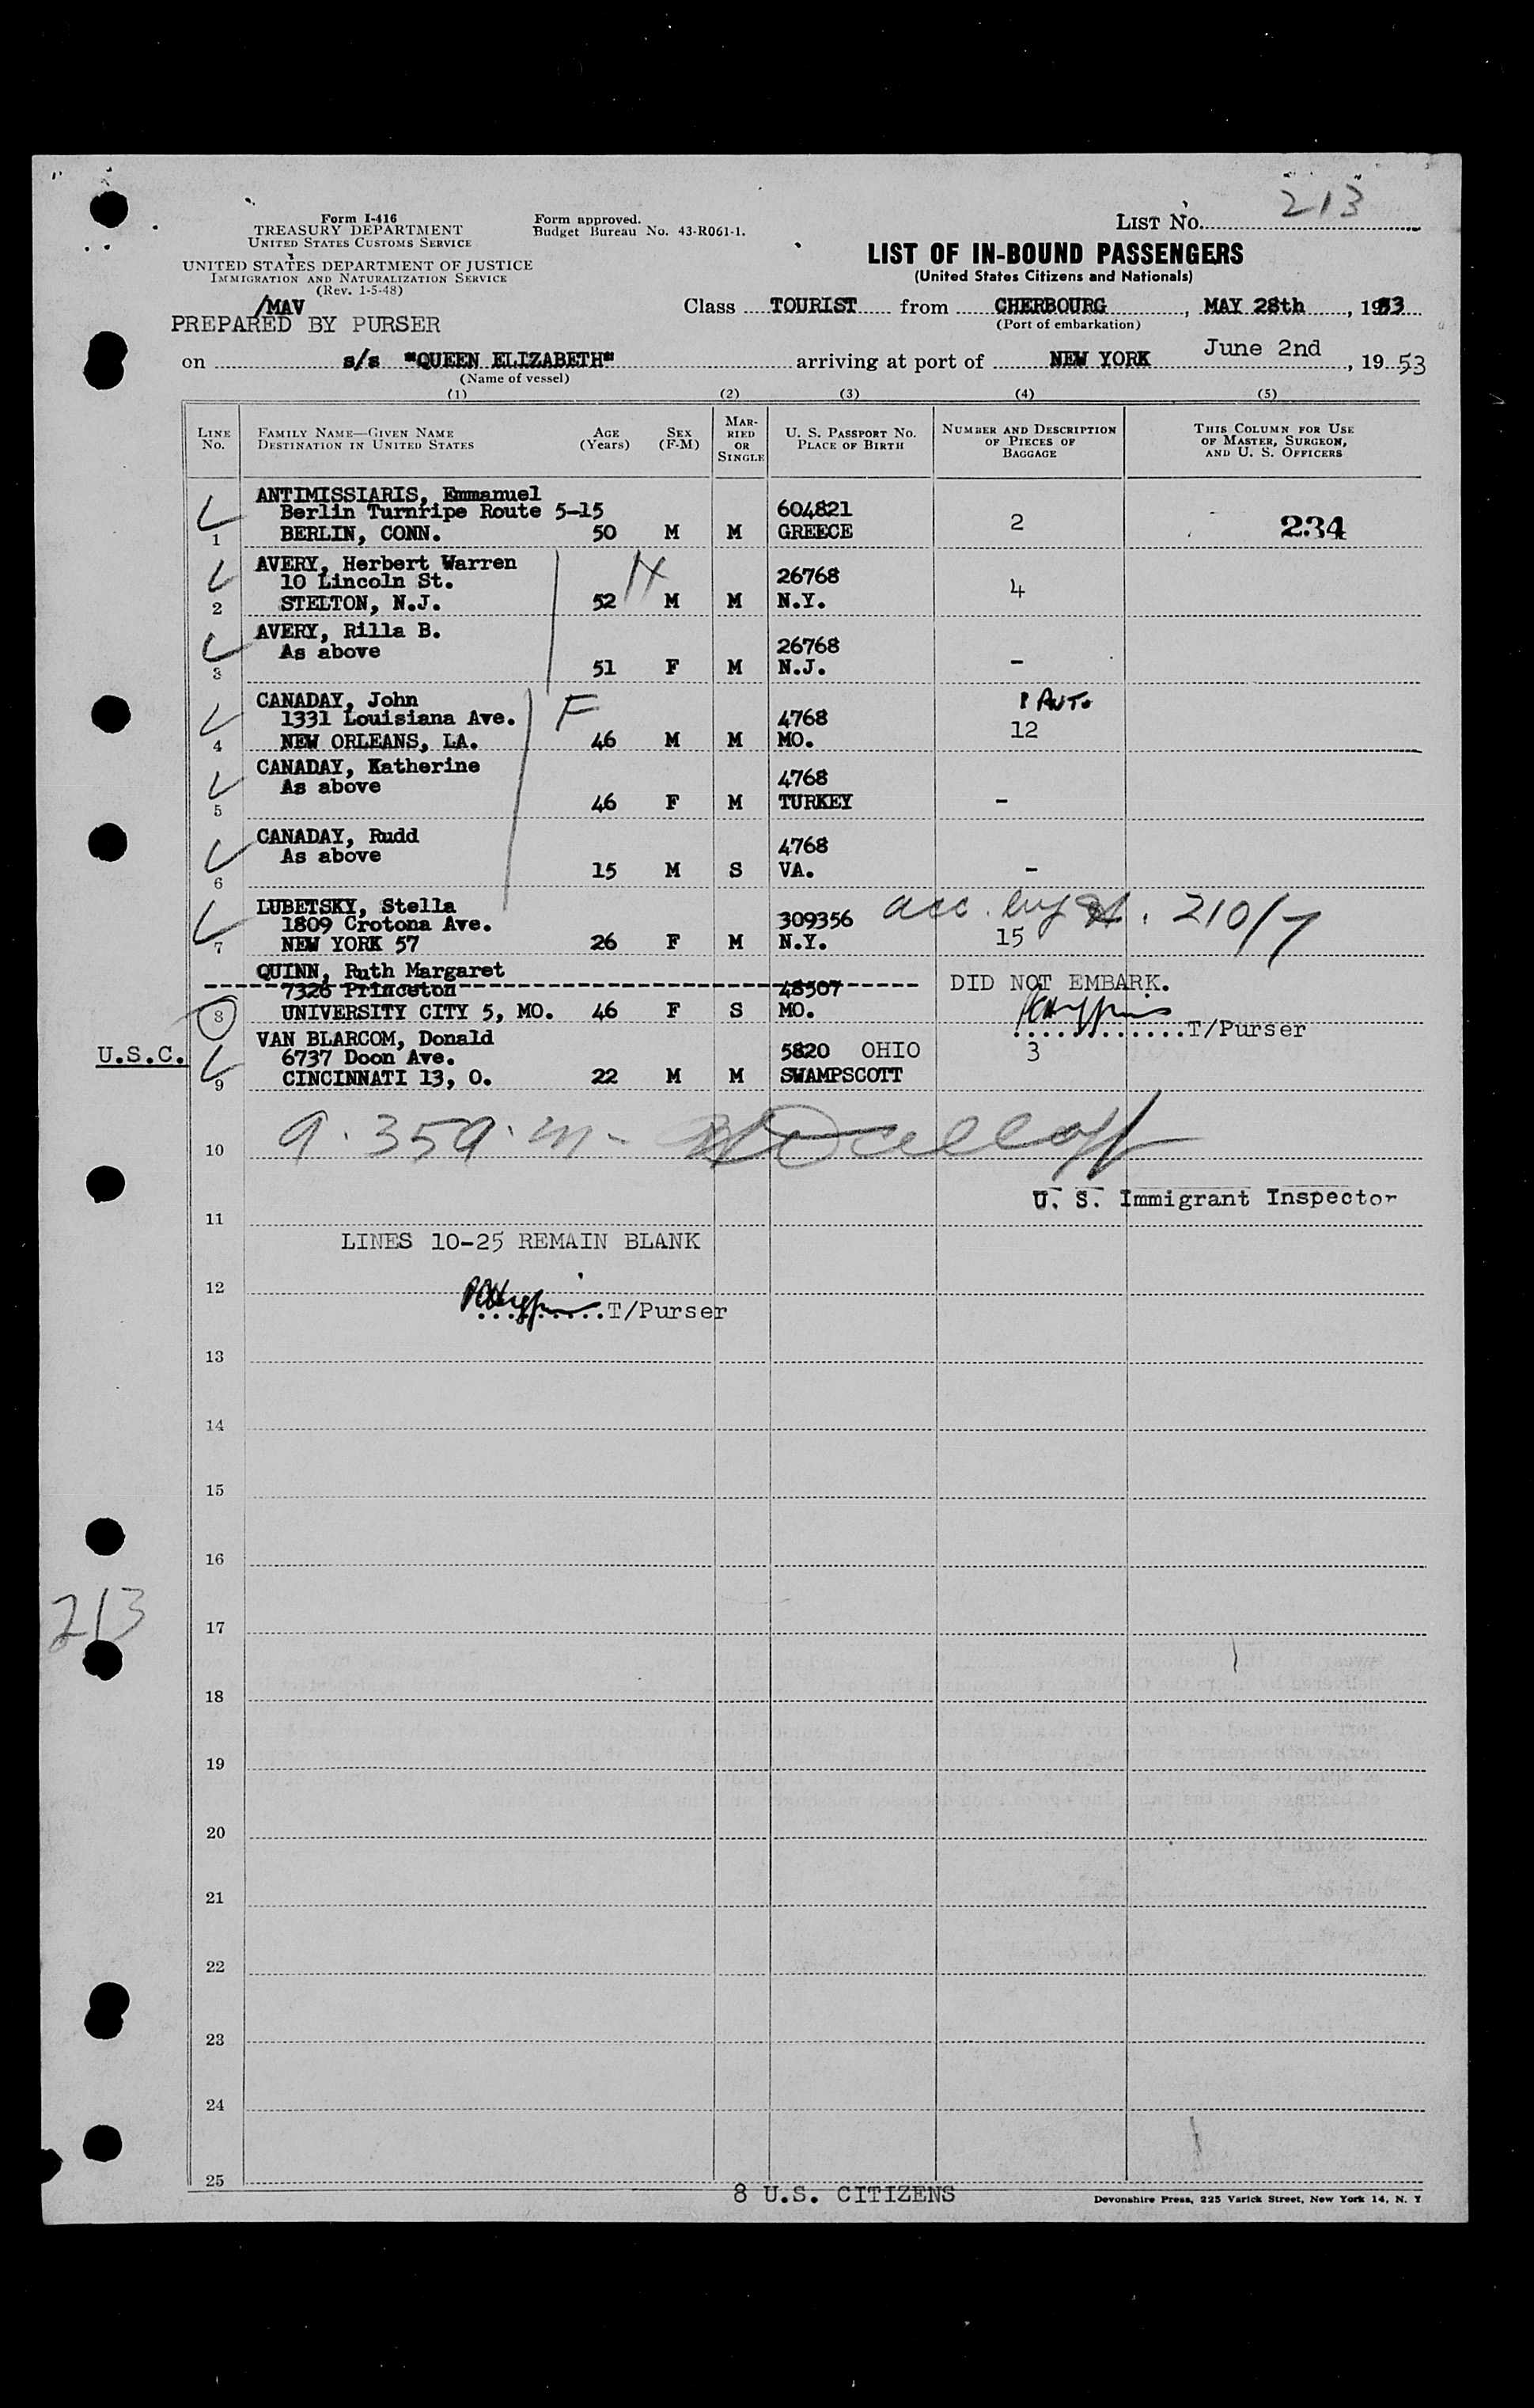 213
Form I-416
TREASURY DEPARTMENT
UNITED STATES CUSTOMS SERVICE
Form approved.
Budget Bureau No. 43-R061-1.
LIST NO.
UNITED STATES DEPARTMENT OF JUSTICE
IMMIGRATION AND NATURALIZATION SERVICE
(Rev. 1-5-48)
LIST OF IN-BOUND PASSENGERS
(United States Citizens and Nationals)
/MAV
PREPARED BY PURSER
Class TOURIST from CHERBOURG, MAY 28th, 1953
(Port of embarkation)
on s/s "QUEEN ELIZABETH" arriving at port of NEW YORK June 2nd, 1953
(Name of vessel)
(1) (2) (3) (4) (5)
LINE NO. FAMILY NAME—GIVEN NAME DESTINATION IN UNITED STATES AGE (Years) SEX (F-M) MARRIED OR SINGLE U. S. PASSPORT NO. PLACE OF BIRTH NUMBER AND DESCRIPTION OF PIECES OF BAGGAGE THIS COLUMN FOR USE OF MASTER, SURGEON, AND U. S. OFFICERS
ANTIMISSIARIS, Emmanuel
Berlin Turnripe Route 5-15 604821 2 234
1 BERLIN, CONN. 50 M M GREECE
AVERY, Herbert Warren
10 Lincoln St. 26768 4
2 STELTON, N.J. 52 M M N.Y.
AVERY, Rilla B.
As above 26768
3 51 F M N.J. -
CANADAY, John 1 AUTO
1331 Louisiana Ave. F 4768 12
4 NEW ORLEANS, LA. 46 M M MO.
CANADAY, Katherine
As above 4768
5 46 F M TURKEY -
CANADAY, Rudd
As above 4768
6 15 M S VA. -
LUBETSKY, Stella
1809 Crotona Ave. 309356 acc. by 210/7
7 NEW YORK 57 26 F M N.Y. 15
QUINN, Ruth Margaret
7326 Princeton 48507 DID NOT EMBARK.
8 UNIVERSITY CITY 5, MO. 46 F S MO.
T/Purser
VAN BLARCOM, Donald
U.S.C. 6737 Doon Ave. 5820 OHIO 3
9 CINCINNATI 13, O. 22 M M SWAMPSCOTT
10
U. S. Immigrant Inspector
11
LINES 10-25 REMAIN BLANK
12
T/Purser
13
14
15
16
213
17
18
19
20
21
22
23
24
25
8 U.S. CITIZENS
Devonshire Press, 225 Varick Street, New York 14, N. Y